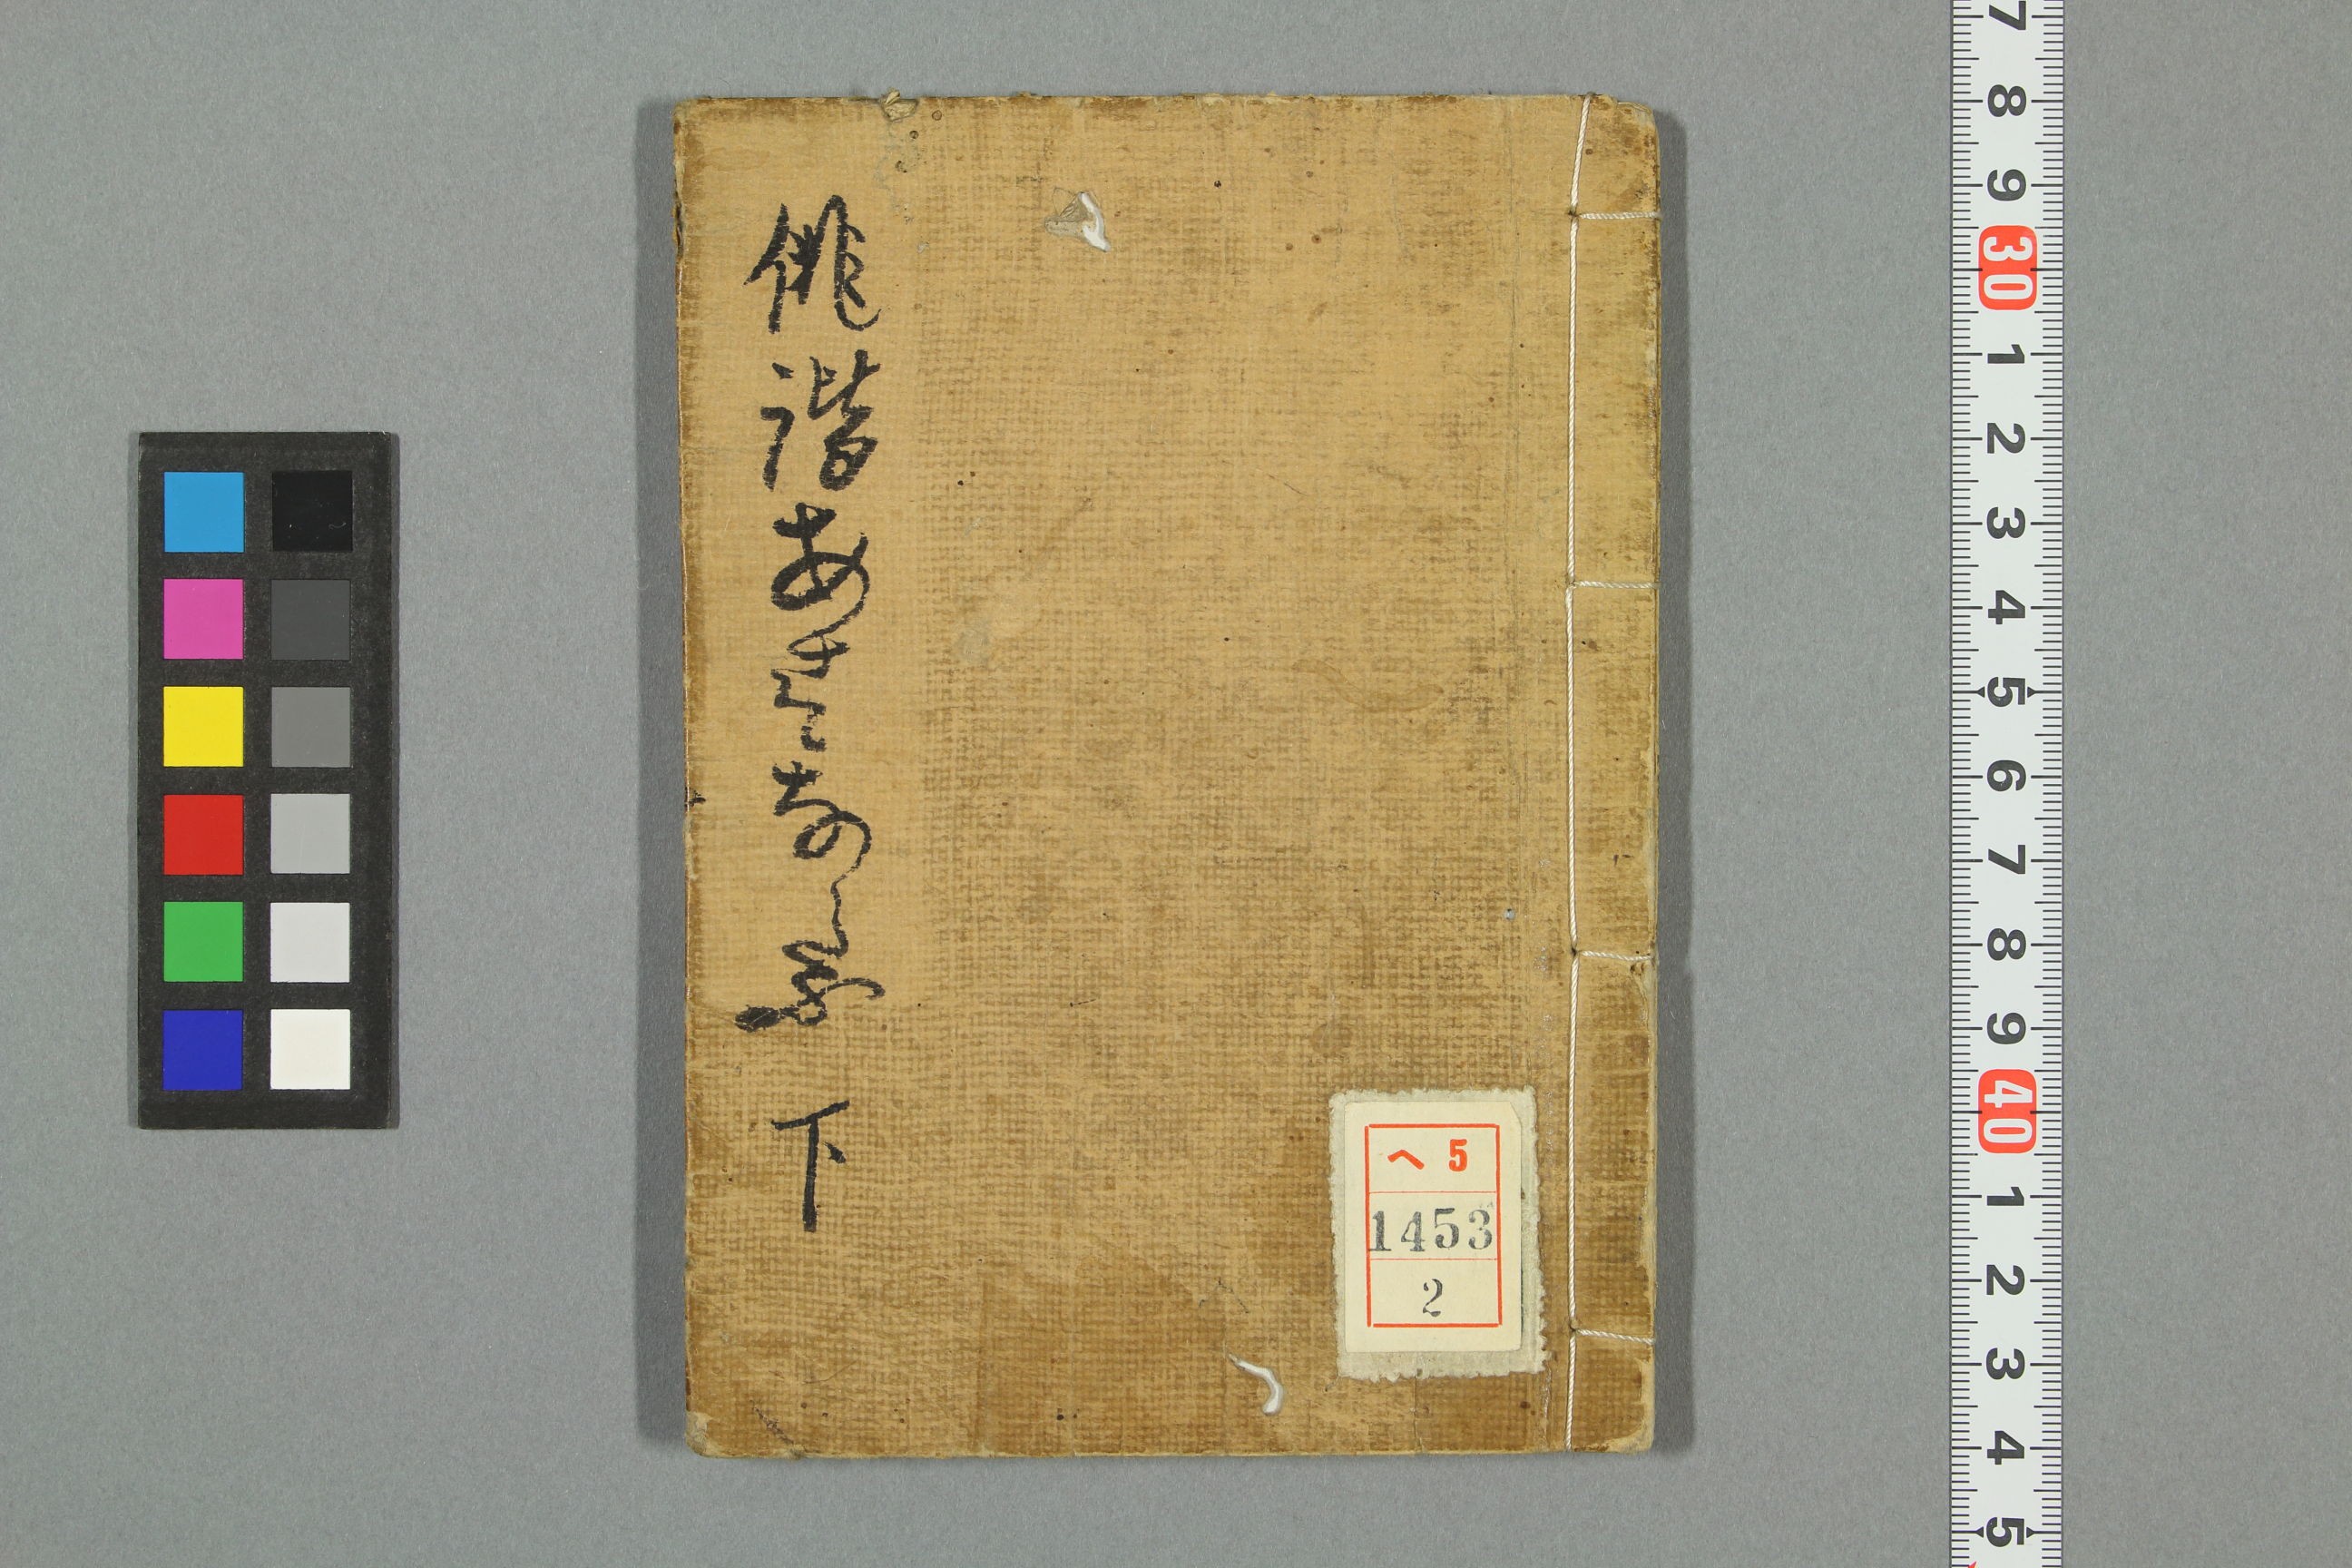 俳諧
下
へ 5
1453
2
7
8
9
30
1
2
3
4
5
6
7
8
9
40
1
2
3
4
5